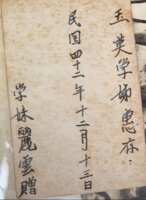 玉英学姊惠存：
民国四十二年十二月十三日
学妹丽雲赠